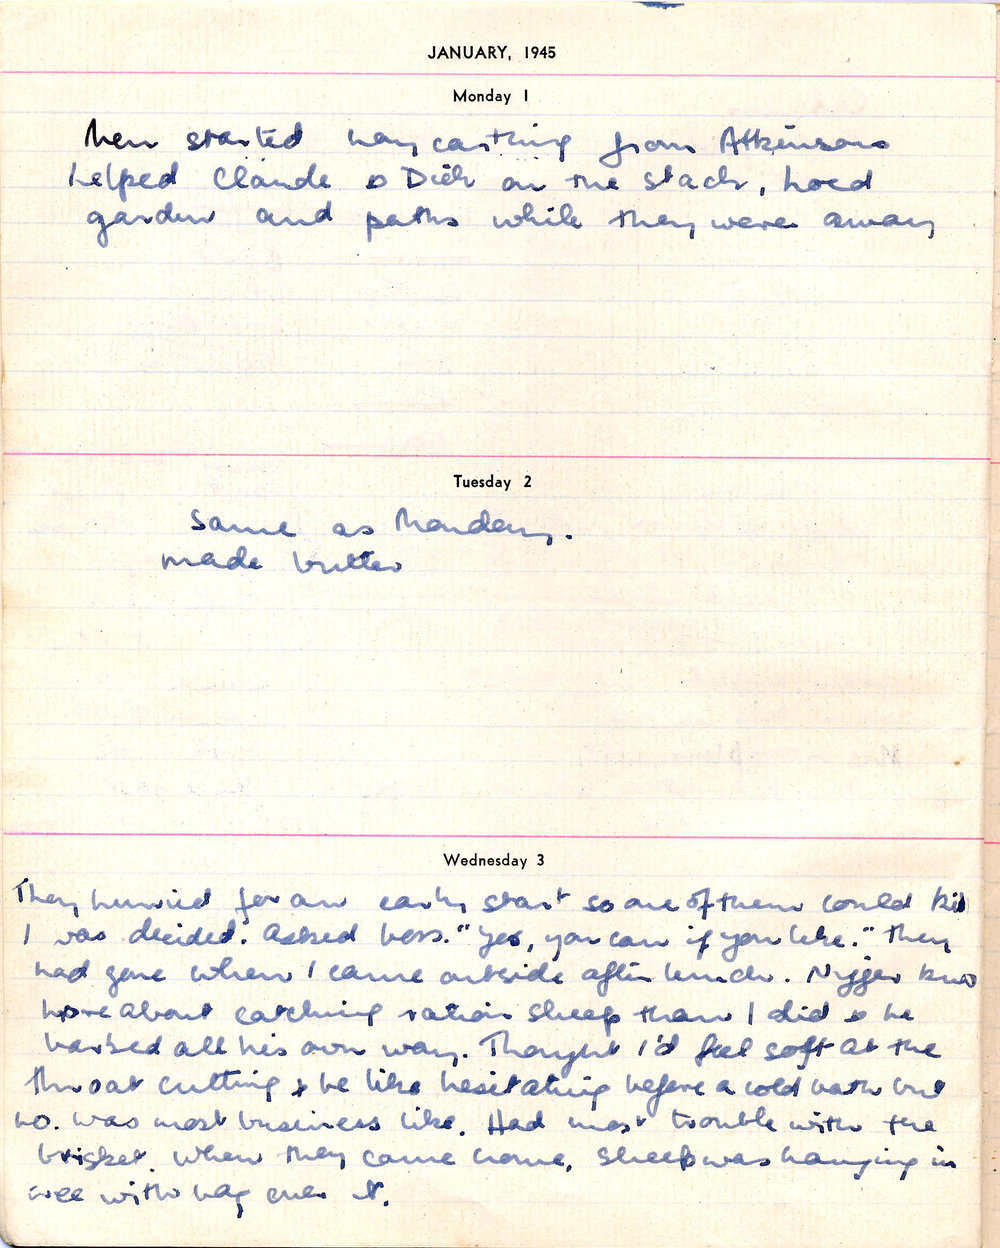 JANUARY, 1945
Monday 1
Men started hay carting from Atkinsons
helped Claude & Dick on the stack, hoed
garden and paths while they were away
Tuesday 2
Same as Monday.
made butter
Wednesday 3
They hurried for an early start so one of them could kill
I was decided. Asked boss. "Yes, you can if you like." They
had gone when I came outside after lunch. Nigger knew
more about catching ration sheep than I did & he
barked all his own way. Thought I'd feel soft at the
throat cutting & be like hesitating before a cold bath but
no. Was most business like. Had most trouble with the
brisket. When they came home, sheep was hanging in
tree with bag over it.